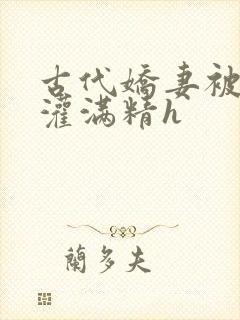 古代嬌妻被
灌满精h
蘭多夫